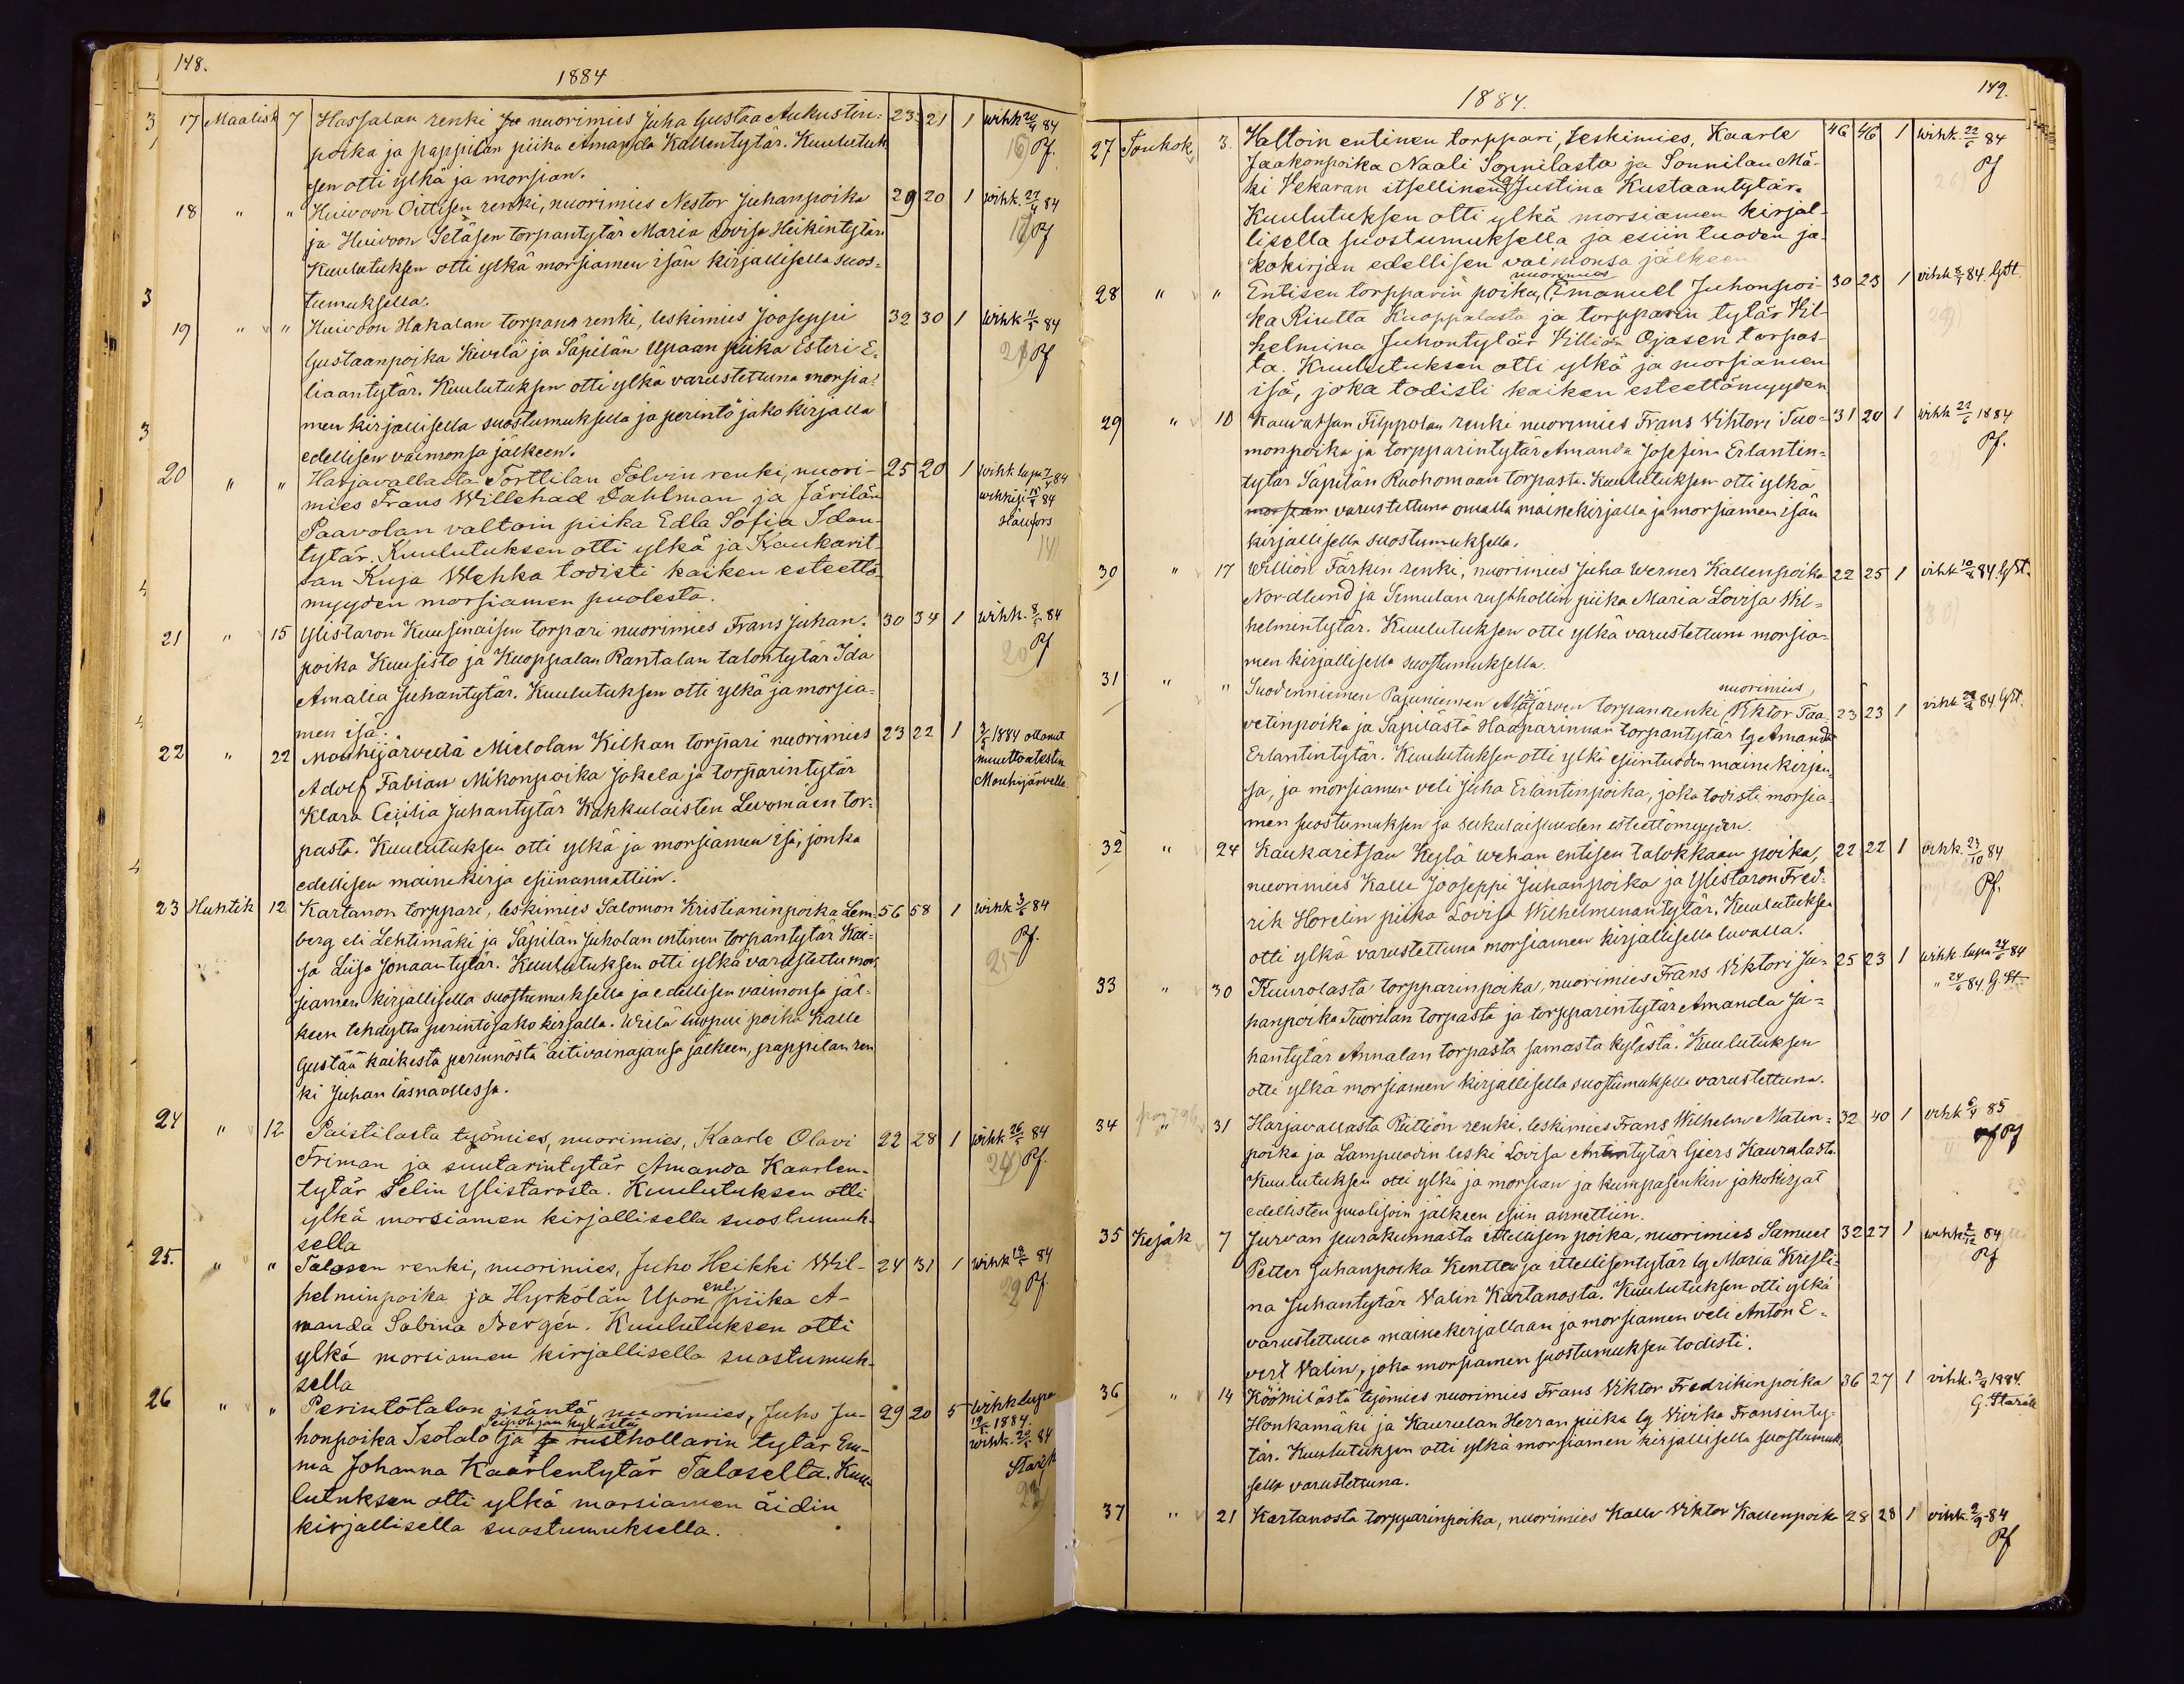 148.
1884
17 Maalisk 7 Hassalan renki nuorimies Juha Gustaa Aukustin= 23 21 1 wihk 20/4 84
poika ja pappilan piika Amanda Kallentytär. Kuulutuk Pf.
sen otti ylkä ja morsian.
18 " " Huivoon Oittisen renki, nuorimies Nestor Juhanpoika 29 20 1 wihk. 27/4 84
ja Huivoon Setäsen torpantytär Maria Lovisa Heikintytär. Pf
Kuulutuksen otti ylkä morsiamen isän kirjallisella suos=
tumuksella.
19 " " Huivoon Hakalan torpana renki, leskimies Jooseppi 32 30 1 wihk 11/5 84
Gustaanpoika Kivelä ja Säpilän Upaan piika Esteri E= Pf
liaantytär. Kuulutuksen otti ylkä varustettuna morsia=
men kirjallisella suostumuksella ja perintö jako kirjalla
edellisen vaimonsa jälkeen.
20 " " Harjavallasta Torttilan Tolvin renki, nuori- 25 20 1 wihk lupa 7/4 84
mies Frans Willehad Dahlman ja Järilän
Paavolan valtoin piika Edla Sofia Idan-
tytär. Kuulutuksen otti ylkä ja Kaukarit-
san Kuja Wehka todisti kaiken esteettö-
myyden morsiamen puolesta.
21 " 15 Ylistaron Kuusinaisen torpari nuorimies Frans Juhan= 30 34 1 wihk. 8/5 84
poika Kuusisto ja Kuoppalan Rantalan talontytär Ida Pf
Amalia Juhantytär. Kuulutuksen otti ylkä ja morsia=
men isä.
22 " 22 Mouhijärveltä Mielolan Kilkan torpari nuorimies 23 22 1 1884 ottanut
Adolf Fabian Mikonpoika Jokela ja torparintytär muuttoatestin
Klara Cecilia Juhantytär Kakkulaisten Levomäen tor= Mouhijärvelle.
pasta. Kuulutuksen otti ylkä ja morsiamen isä, jonka
edellisen mainekirja esiinannettiin.
23 Huhtik 12 Kartanon torppari, leskimies Salomon Kristianinpoika Lem= 56 58 1 wihk 3/6 84
berg eli Lehtimäki ja Säpilän Juholan entinen torpantytär Kai= Pf.
sa Liisa Jonaantytär. Kuulutuksen otti ylkä varustettu mor= 25
siamen kirjallisella suostumuksella ja edellisen vaimonsa jäl-
keen tehdyttä perintöjako kirjalla. Wielä luopui poika Kalle
Gustaa kaikesta perinnöstä äitivainajansa jälkeen, pappilan ren
ki Juhan läsnäollessa.
24 " 12 Paistilasta työmies, nuorimies, Kaarle Olavi 22 28 1 wihk 26/5 84
Friman ja suutarintytär Amanda Kaarlen- Pf.
tytär Selin Ylistarosta. Kuulutuksen otti
ylkä morsiamen kirjallisella suostumuk-
sella
25. " " Talosen renki, nuorimies, Juho Heikki Wil- 24 31 1 wihk 18/5 84
helminpoika ja Hyrkölän Upon piika A- Pf.
manda Sabina Bergén. Kuulutuksen otti
ylkä morsiamen kirjallisella suostumuk-
sella
26 " " Perintötalon isäntä nuorimies, Juho Ju- 29 20 5 wihk lupa
honpoika Isotalo Seipohjan kylästä ja rusthollarin tytär Em- 1884.
ma Johanna Kaarlentytär Talosella. Kuu-
lutuksen otti ylkä morsiamen äidin
kirjallisella suostumuksella.
149.
1884.
27 Toukok 3. Haltoin entinen torppari, leskimies, Kaarle 46 46 1 wihk. 22/5 84
Jaakonpoika Naali Sonnilasta ja Sonnilan Mä- Pf
ki Vekaran itsellinen Justina Kustaantytär.
Kuulutuksen otti ylkä morsiamen kirjal-
lisella suostumuksella ja esiin tuoden ja-
kokirjan edellisen vaimonsa jälkeen
28 " " Entisen torpparin poika, nuorimies Emanuel Juhonpoi- 30 23 1 vihk 84. GSt.
ka Riutta Kuoppalasta ja torpparin tytär Vil-
helmina Juhontytär Villiön Ojasen torpas-
ta. Kuulutuksen otti ylkä ja morsiamen
isä, joka todisti kaiken esteettömyyden
29 " 10 Kauvatsan Filppolan renki nuorimies Frans Vihtori Tuo= 31 20 1 wihk 22/6 1884
monpoika ja torpparintytär Amanda Josefina Erlantin= Pf.
tytär Säpilän Ruohomaan torpasta. Kuulutuksen otti ylkä
morsian varustettuna omalla mainekirjalla ja morsiamen isän
kirjallisella suostumuksella.
30 " 17 Williön Färkin renki, nuorimies Juha Werner Kallenpoika 22 25 1 vihk 10/8 84. GSt.
Nordlund ja Simulan rusthollin piika Maria Lovisa Wil=
helmintytär. Kuulutuksen otti ylkä varustettuna morsia=
men kirjallisella suostumuksella.
31 " " Suodenniemen Pajuniemen torpanrenki nuorimies Viktor Taa= 23 23 1 vihk 84 GSt.
vetinpoika ja Säpilästä Haaparinnan torpantytär lg Amanda
Erlantintytär. Kuulutuksen otti ylkä esiintuoden maine kirjan=
sa, ja morsiamen veli Juha Erlantinpoika, joka todisti morsia=
men suostumuksen ja sukulaisuuden esteettömyyden.
32 " 24 Kaukaritsan Kylä wehan entisen talokkaan poika, 22 22 1 vihk. 23/10 84
nuorimies Kalle Jooseppi Juhanpoika ja Ylistaron Fred= Pf.
rik Horelin piika Lovisa Wilhelminantytär. Kuulutuksen
otti ylkä varustettuna morsiamen kirjallisella luvalla.
33 " 30 Kuurolasta torpparinpoika, nuorimies Frans Viktori Ju= 25 23 1 wihk. lupa 24/6 84
hanpoika Tuorilan torpasta ja torpparintytär Amanda Ju= " 24/6 84 G. St
hantytär Annalan torpasta samasta kylästä. Kuulutuksen
otti ylkä morsiamen kirjallisella suostumuksella varustettuna.
34 " 31 Harjavallasta Riittiön renki, leskimies Frans Wilhelm Matin= 32 40 1 vihk 85
poika ja Lampuodin leski Lovisa Antintytär Giers Kaurulasta. Pf
Kuulutuksen otti ylkä ja morsian ja kumpasenkin jakokirjat
edellisten puolisoin jälkeen esiin annettiin.
35 Kesäk 7 Jurvan seurakunnasta itellisen poika, nuorimies Samuel 32 27 1 wihk 84
Petter Juhanpoika Kentta ja ittellisentytär lg Maria Kristi= Pf
na Juhantytär Valin Kartanosta. Kuulutuksen otti ylkä
varustettuna mainekirjallaan ja morsiamen veli Anton E=
vert Valin, joka morsiamen suostumuksen todisti.
36 " 14 Köömilästä työmies nuorimies Frans Viktor Fredrikinpoika 36 27 1 vihk. 1884.
Honkamäki ja Kaurulan Herran piika lg Vivika Fransinty=
tär. Kuulutuksen otti ylkä morsiamen kirjallisella suostumuk=
sella varustettuna.
37 " 21 Kartanosta torpparinpoika, nuorimies Kalle Viktor Kallenpoika 28 28 1 vihk. 2/9 84
Pf